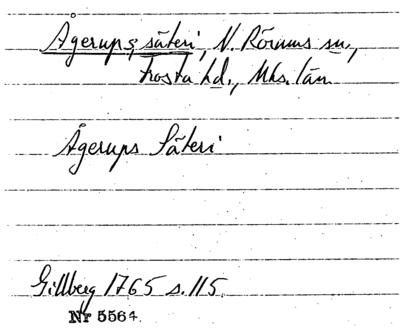 Ågerups säteri, N. Rörums sn.,
Frosta hd., Mhs. län
Ågerups Säteri
Gillberg 1765 s. 115.
Nr 5564.